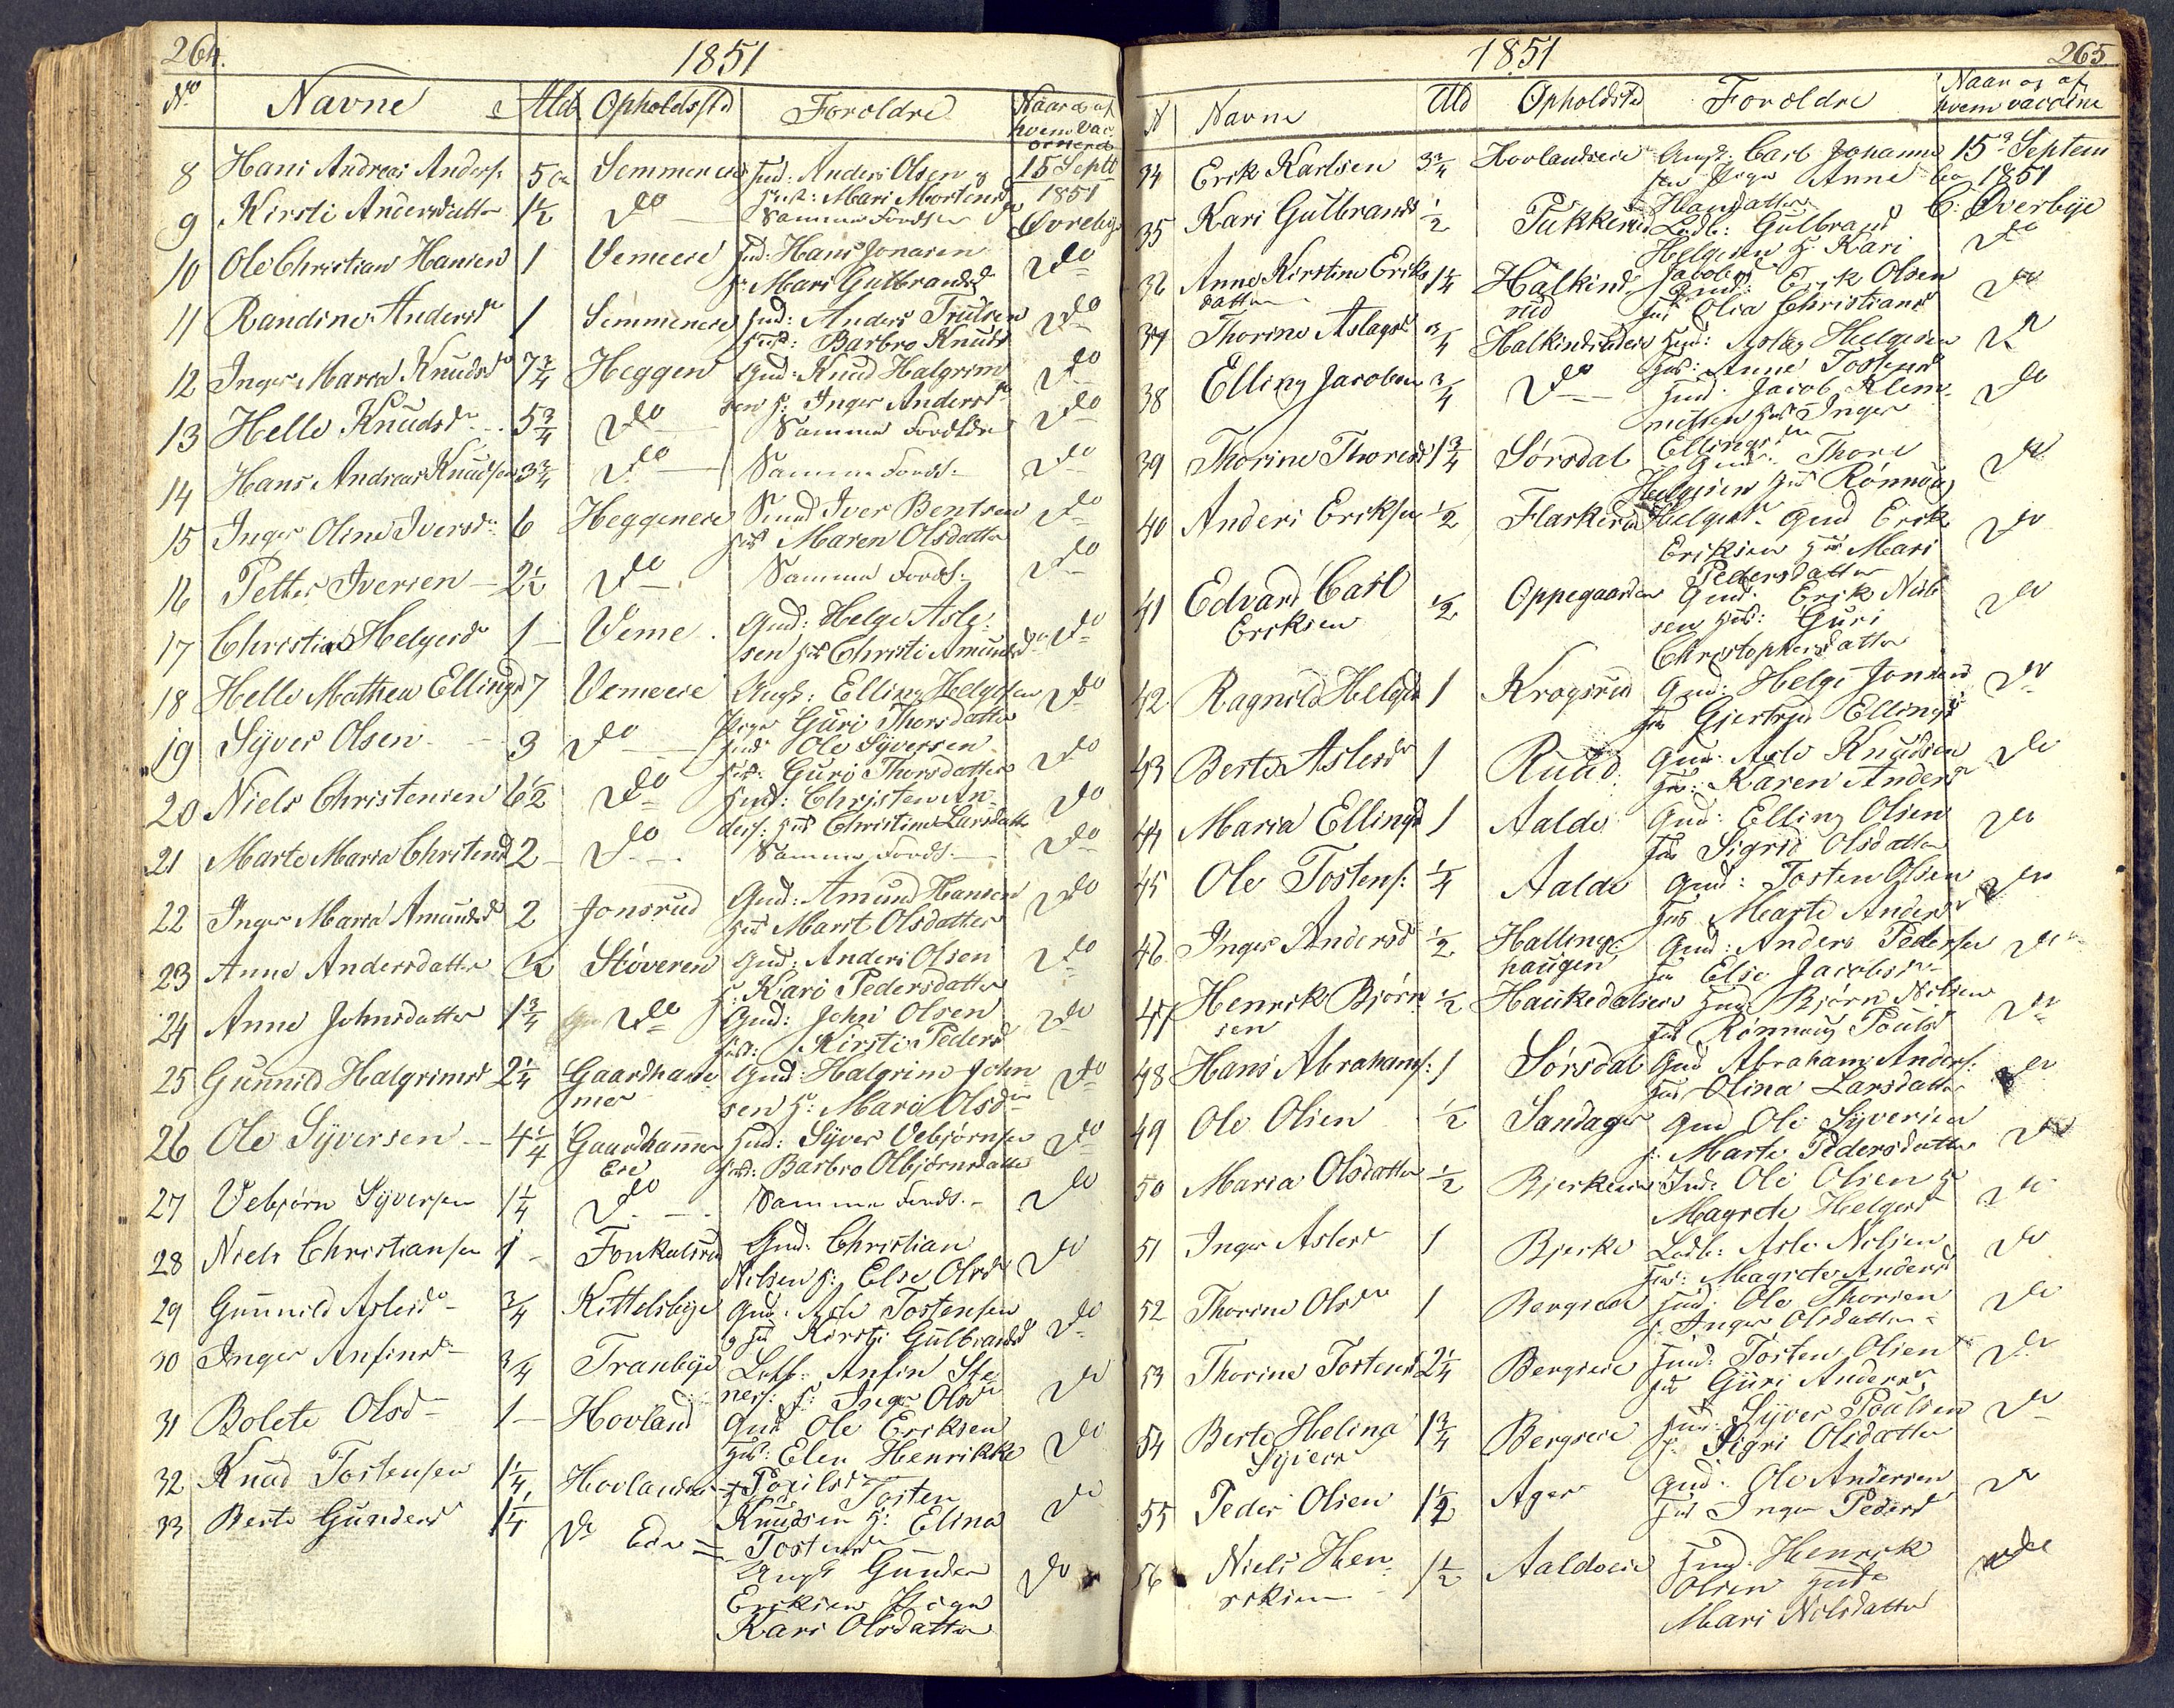 264.
1851
No Navne Ald Opholdsstd Foroldre Naar og af
hvem vac-
cineret
8 Hans Andreas Anders: 5 Semmeneie Hmd: Anders Olsen og 15 Septb
Hust: Mari Mortensd 1851
9 Kirsti Andersdatter 1½ Do Samme Forældre Øvrebye
10 Ole Christian Hansen 1 Vemeeie Hmd: Hans Jonasen Do
H: Mari Gulbrandsd
11 Randine Andersdr 1 Semmeneie Hmd: Anders Trulsen Do
Hust: Barbro Knuds
12 Inger Maria Knudsdr 7¾ Heggen Gmd: Knud Halgrim Do
sen H: Inger Andersdr
13 Helle Knudsdr 5¾ Do Samme Forældre Do
14 Hans Andreas Knudsen 3¾ Do Samme Foræld: Do
15 Inger Oline Iversdr 6 Heggeneie Hmd Iver Bentsen Do
Hust Maren Olsdatter
16 Petter Iversen 2½ Do Samme Foræld: Do
17 Christian Helgesdr 1 Veme Gmd: Helge Asle-
sen Hust Christi Amundsdr Do
18 Helle Mathea Ellingsd 7 Vemeeie Ungk: Elling Helgesen Do
Pige Guri Thorsdatter
19 Syver Olsen 3 Do Hmd Ole Syversen
Hust: Guri Thorsdatter Do
20 Niels Christensen 6½ Do Hmd: Christen An- Do
ders: Hust Christine Larsdatter
21 Marte Maria Christensd 2 Do Samme Foræld: Do
22 Inger Maria Amundsd 2 Jonsrud Gmd: Amund Hansen Do
Hust Marit Olsdatter
23 Anne Andersdatter ½ Støveren Gmd: Anders Olsen Do
H: Kari Pedersdatter
24 Anne Johnsdatter 1¾ Do Gmd: John Olsen Do
Hust: Kirsti Pedersd
25 Gunnild Halgrimsd 2¼ Gaardham Gmd: Halgrim John Do
mer sen H: Mari Olsdr
26 Ole Syversen 4¼ Gaardhammer Hmd: Syver Vebjørnsen Do
Eie Hust: Barbro Olbjørnsdatter
27 Vebjørn Syversen 1¼ Do Samme Foræld: Do
28 Niels Christiansen 1 Fonkalsrud Gmd: Christian Do
Nilsen H: Else Olsdr
29 Gunnild Aslesdr ¾ Kittelsbye Gmd: Asle Tostensen
og Hust Kirsti Gulbrandsd Do
30 Inger Anfinsdr ¾ Tranbye Ledb: Anfin Ste
ners: H: Inger Olsdr Do
31 Bolete Olsd 1 Hovland Gmd Ole Eriksen
Hust: Elen Henrikke Do
32 Knud Tostensen 1¼ Hovlandseie Tosten
Knudsen H: Elina Do
33 Berte Gundersd 1¼ Do Eie Tostensdr
Ungk Gunder
Eriksen Pige Do
Kari Olsdatter
265
1851
N Navne Ald Opholdstd Foroldre Naar og af
hvem vaccine
34 Erik Karlsen 3¾ Hovlandseie Ungk: Carl Johanne 15d Septem
sen Pige Anne ber 1851
Hansdatter C: Øverbye
35 Kari Gulbrandsd ½ Ledb: Gulbrand
Helgesen H: Kari Do
Jacobsd
36 Anne Kirstine Eriks 1¼ Halkinds Gmd: Erik Olsen
datter rud Hust Olia Christiansd Do
37 Thorine Aslagsd ¾ Halkindsrudeie Hmd: Aslag Helgesen Do
Hust: Anne Tostensd
38 Elling Jacobsen ¾ Do Hmd Jacob Klem- Do
metsen Hust Inger
Ellingsdr
39 Thorine Thoresd 1¾ Sørsdal Gmd: Thore Do
Helgesen Hust Rønnoug
Helgesdr
40 Anders Eriksen ½ Gmd Erik Do
Eriksen Hust Mari
Pedersdatter
41 Edvard Carl ½ Oppegaarden Gmd: Erik Niel Do
Eriksen sen Hust: Guri
Christophersdatter
42 Ragnild Helgesd 1 Krogsrud Gmd: Helge Jonsen Do
Hust Gjertrud Ellingsd
43 Berte Aslesdr 1 Ruud Gmd: Asle Knudsen Do
Hust: Karen Andersd
44 Maria Ellingsd 1 Aalde Gmd: Elling Olsen Do
Hust Sigrid Olsdatter
45 Ole Tostens: ¼ Aalde Gmd: Tosten Olsen Do
Hust Marte Andersdr
46 Inger Andersd ½ Hallings- Gmd: Anders Pedersen Do
haugen Hust Else Jacobsdr
47 Henrik Bjørn ½ Haukedalseie Hmd Bjørn Nilsen
sen Hust Rønnoug Poulsd Do
48 Hans Abrahams: 1 Sørsdal Gmd Abraham Anders: Do
Hust Olina Larsdatter
49 Ole Olsen ½ Sandager Gmd Ole Syversen
H: Marte Pedersdatter Do
50 Maria Olsdatter ½ Bjerkeeie Hmd: Ole Olsen H
Magrete Helgesd Do
51 Inger Aslesdr 1 Bjerke Ledb: Asle Nilsen Do
Hust: Magrete Andersd
52 Thorine Olsdr 1 Bergseie Hmd: Ole Thorsen Do
H: Inger Olsdatter
53 Thorine Tostensd 2¼ Bergseie Hmd: Tosten Olsen Do
Hust Guri Andersdr
54 Berte Helina 1¾ Bergseie Hmd: Syver Poulsen Do
Syversd H. Sigri Olsdatter
55 Peder Olsen 1½ Ager Gmd: Ole Andersen Do
Hust Inger Pedersd
56 Niels Hen 1½ Aaldeeie Hmd: Henrik Do
riksen Olsen Hust
Mari Nilsdatter